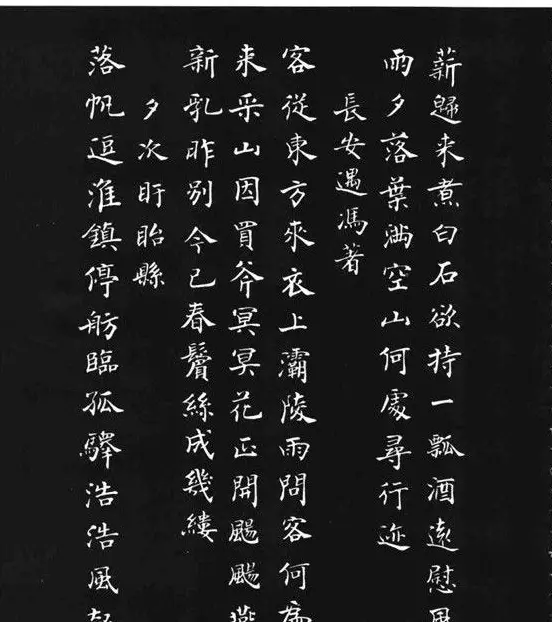 薪歸来煮白石欲持一瓢酒遠慰風
雨夕落葉滿空山何處尋行迹
長安遇馮著
客從東方來衣上灞陵雨問客何為
来采山因買斧冥冥花正開颺颺燕
新乳昨別今已春鬢絲成幾縷
夕次盱眙縣
落帆逗淮鎮停舫臨孤驛浩浩風起